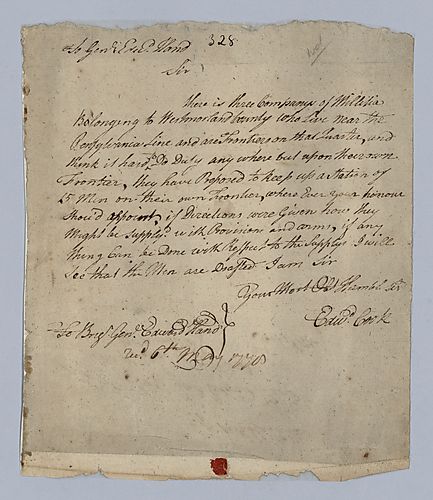 To Genl. Edwd. Hand 328
Sir
there is three Companys of Militia
Belonging to Westmorland County who Live near the
Pensylvania Line and are Frontiers on that Quarter, and
think it hard to Do Duty any where but upon their own
Frontier, they have Proposed to keep up a Station of
25 Men on their own Frontier, where Ever your honour
Should appoint, if Directions were Given how they
Might be Supplyd with Provisions and arms, if any
thing Can be Done with Respect to the Supplys I will
See that the Men are Drafted I am Sir
Your Most Obt Humbl Sr
Edwd. Cook
To Brigr. Genl. Edward Hand
6th May 1778